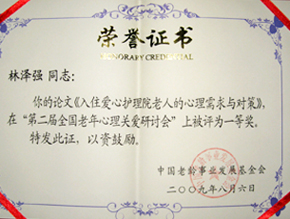 荣誉证书
HONORARY CREDENTIAL
林泽强 同志：
你的论文《入住爱心护理院老人的心理需求与对策》，
在“第二届全国老年心理关爱研讨会”上被评为一等奖。
特发此证，以资鼓励。
中国老龄事业发展基金会
二〇〇九年八月六日